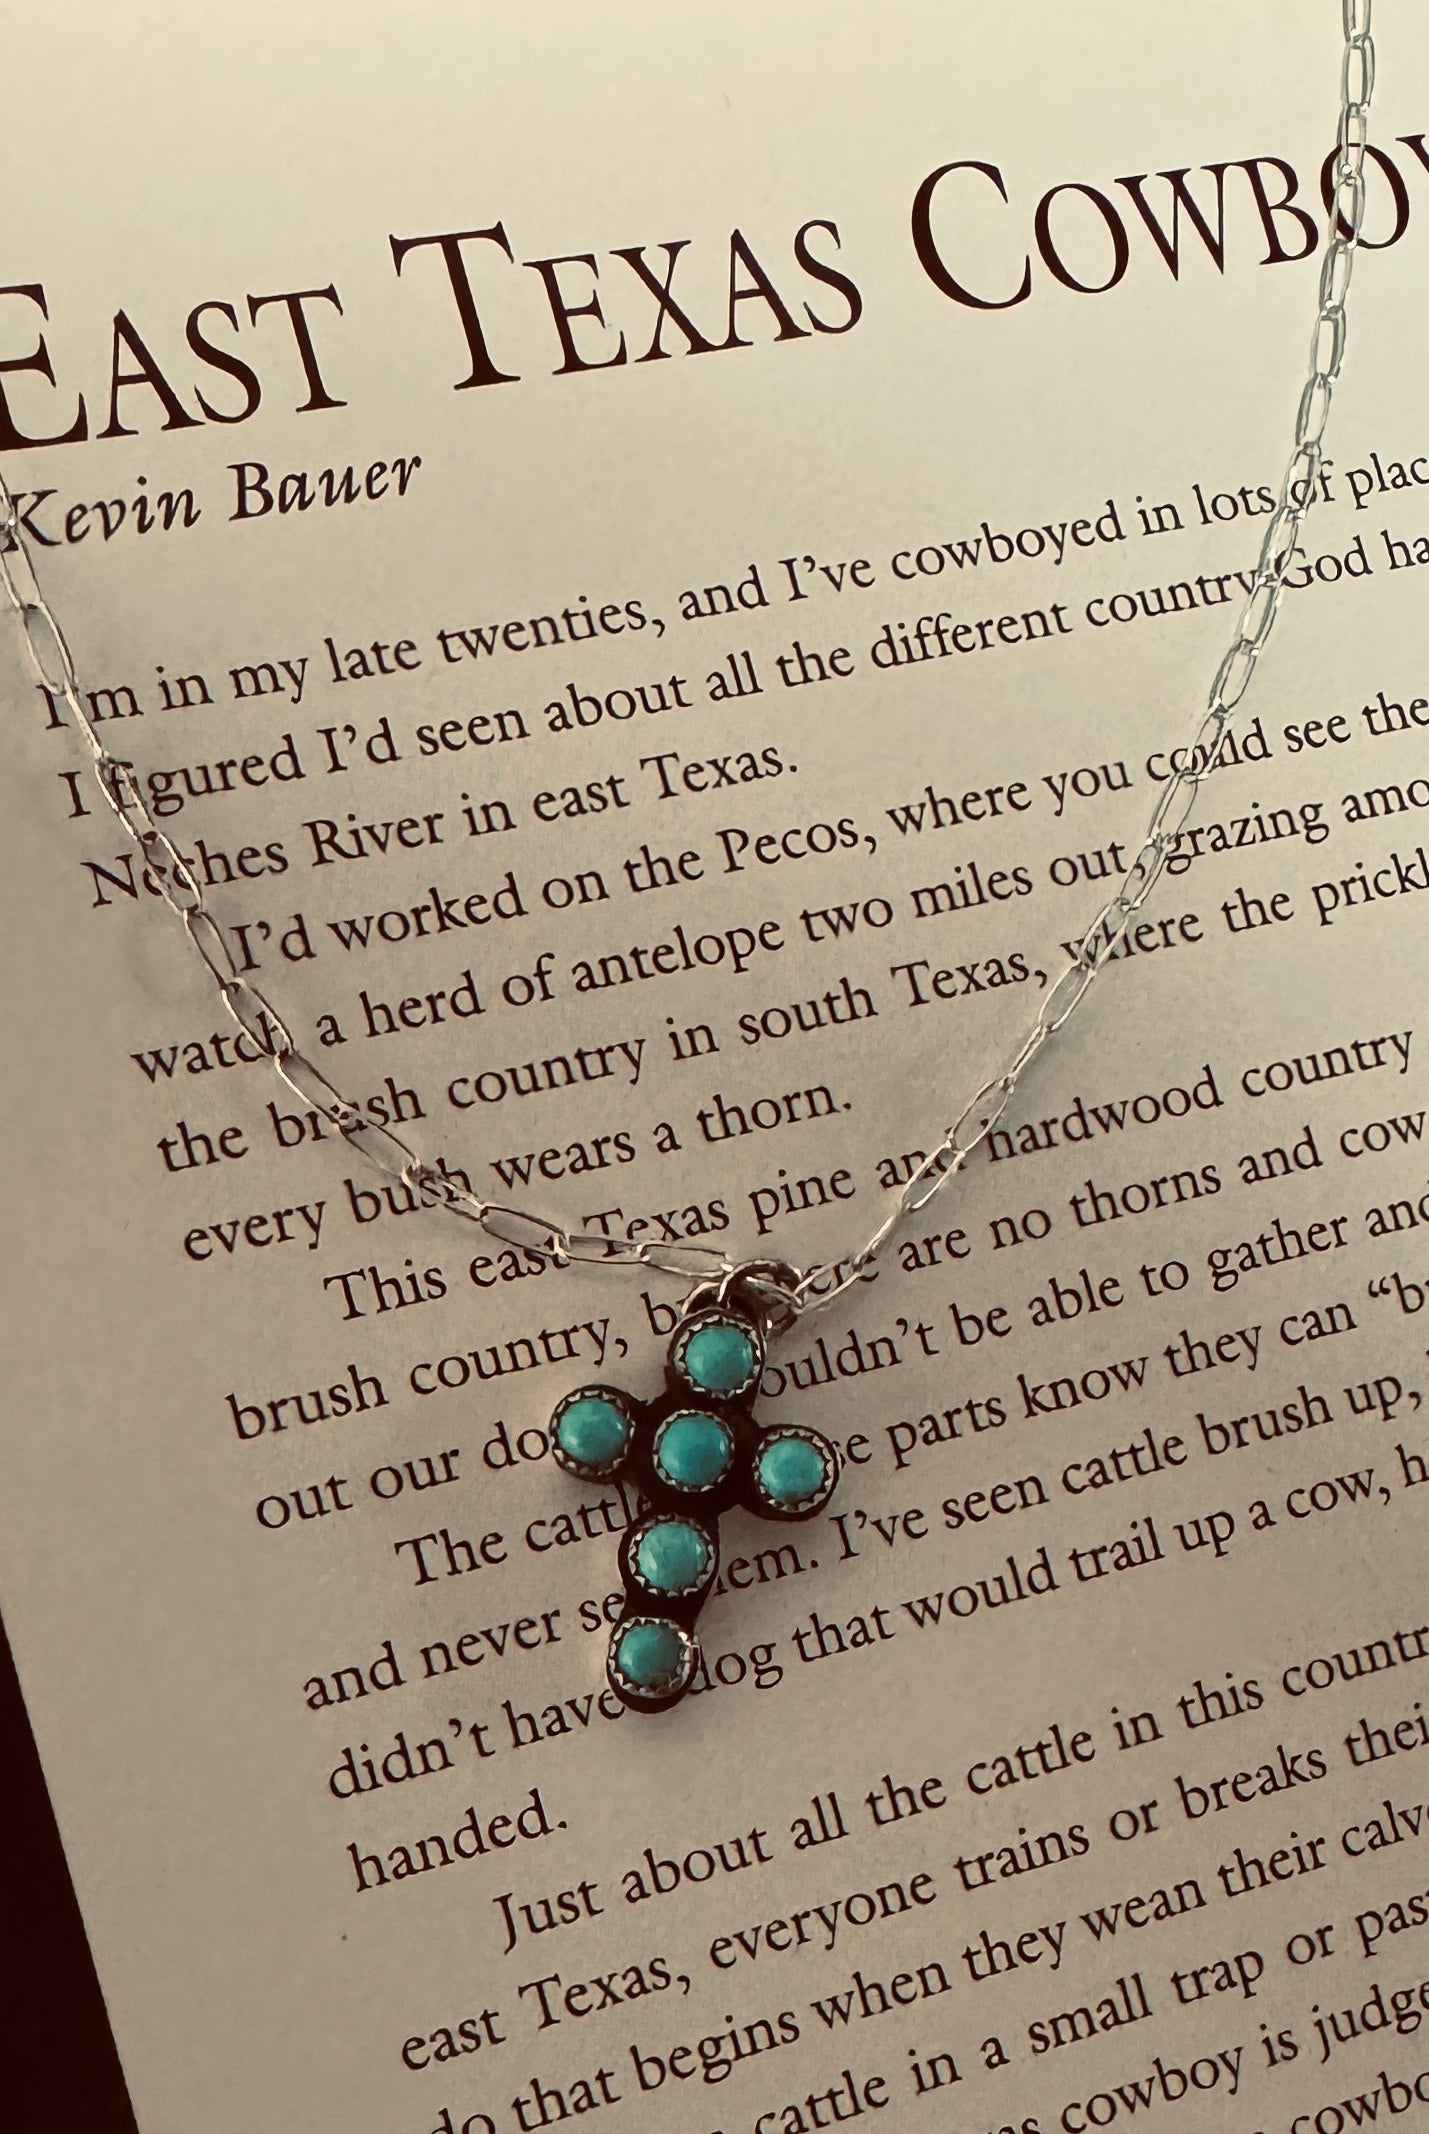 EAST TEXAS COWBOY
Kevin Bauer
I'm in my late twenties, and I've cowboyed in lots of
I figured I'd seen about all the different country God
Neches River in east Texas.
I'd worked on the Pecos, where you could see the
watch a herd of antelope two miles out, grazing
the brush country in south Texas, where the
every bush wears a thorn.
This east Texas pine and hardwood country
brush country, are no thorns and
out our be able to gather
The parts know they can
and never I've seen cattle brush up,
didn't have dog that would trail up a cow,
handed.
Just about all the cattle in this
east Texas, everyone trains or breaks
do that begins when they wean their
cattle in a small trap or
cowboy is